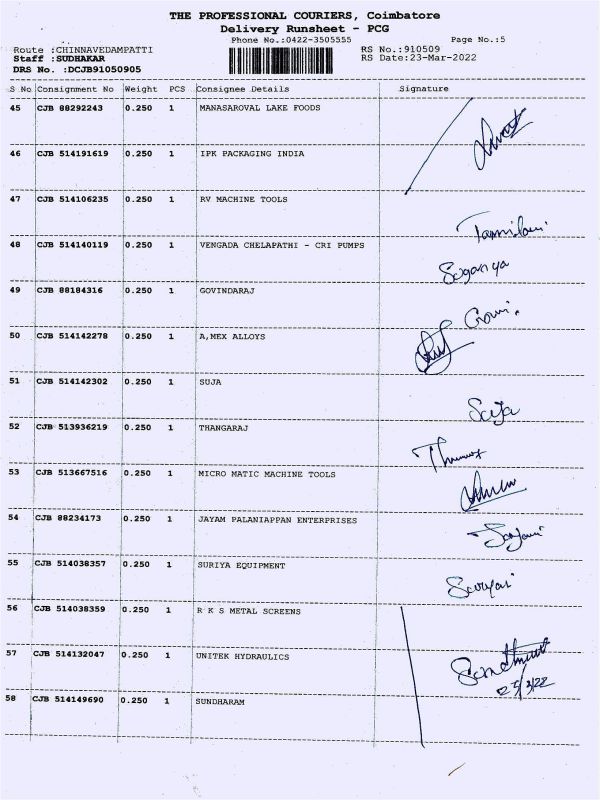 THE PROFESSIONAL COURIERS, Coimbatore
Delivery Runsheet - PCG
Phone No.:0422-3505555 Page No.:5
Route :CHINNAVEDAMPATTI RS No.:910509
Staff :SUDHAKAR RS Date:23-Mar-2022
DRS No. :DCJB91050905
S No Consignment No Weight PCS Consignee Details Signature
45 CJB 88292243 0.250 1 MANASAROVAL LAKE FOODS
46 CJB 514191619 0.250 1 IPK PACKAGING INDIA
47 CJB 514106235 0.250 1 RV MACHINE TOOLS
48 CJB 514140119 0.250 1 VENGADA CHELAPATHI - CRI PUMPS
49 CJB 88184316 0.250 1 GOVINDARAJ
50 CJB 514142278 0.250 1 A,MEX ALLOYS
51 CJB 514142302 0.250 1 SUJA
Suja
52 CJB 513936219 0.250 1 THANGARAJ
53 CJB 513667516 0.250 1 MICRO MATIC MACHINE TOOLS
54 CJB 88234173 0.250 1 JAYAM PALANIAPPAN ENTERPRISES
55 CJB 514038357 0.250 1 SURIYA EQUIPMENT
56 CJB 514038359 0.250 1 R K S METAL SCREENS
57 CJB 514132047 0.250 1 UNITEK HYDRAULICS
58 CJB 514149690 0.250 1 SUNDHARAM